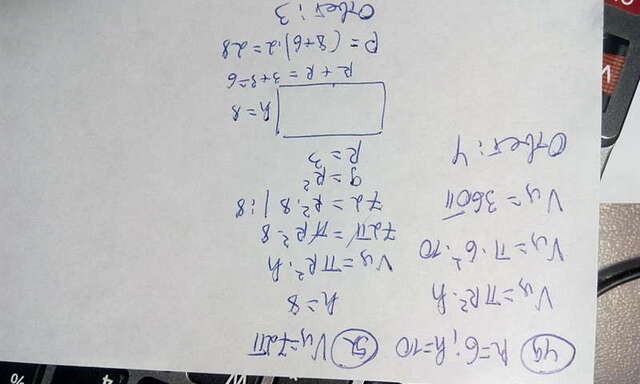 49 R=6; h=10
Vц=πR²·h
Vц=π·6²·10
Vц=360π
Ответ: 4
52 Vц=72π
h=8
Vц=πR²·h
72π=πR²·8
72=R²·8 |:8
9=R²
R=3
h=8
R+R=3+3=6
P=(8+6)·2=28
Ответ: 3